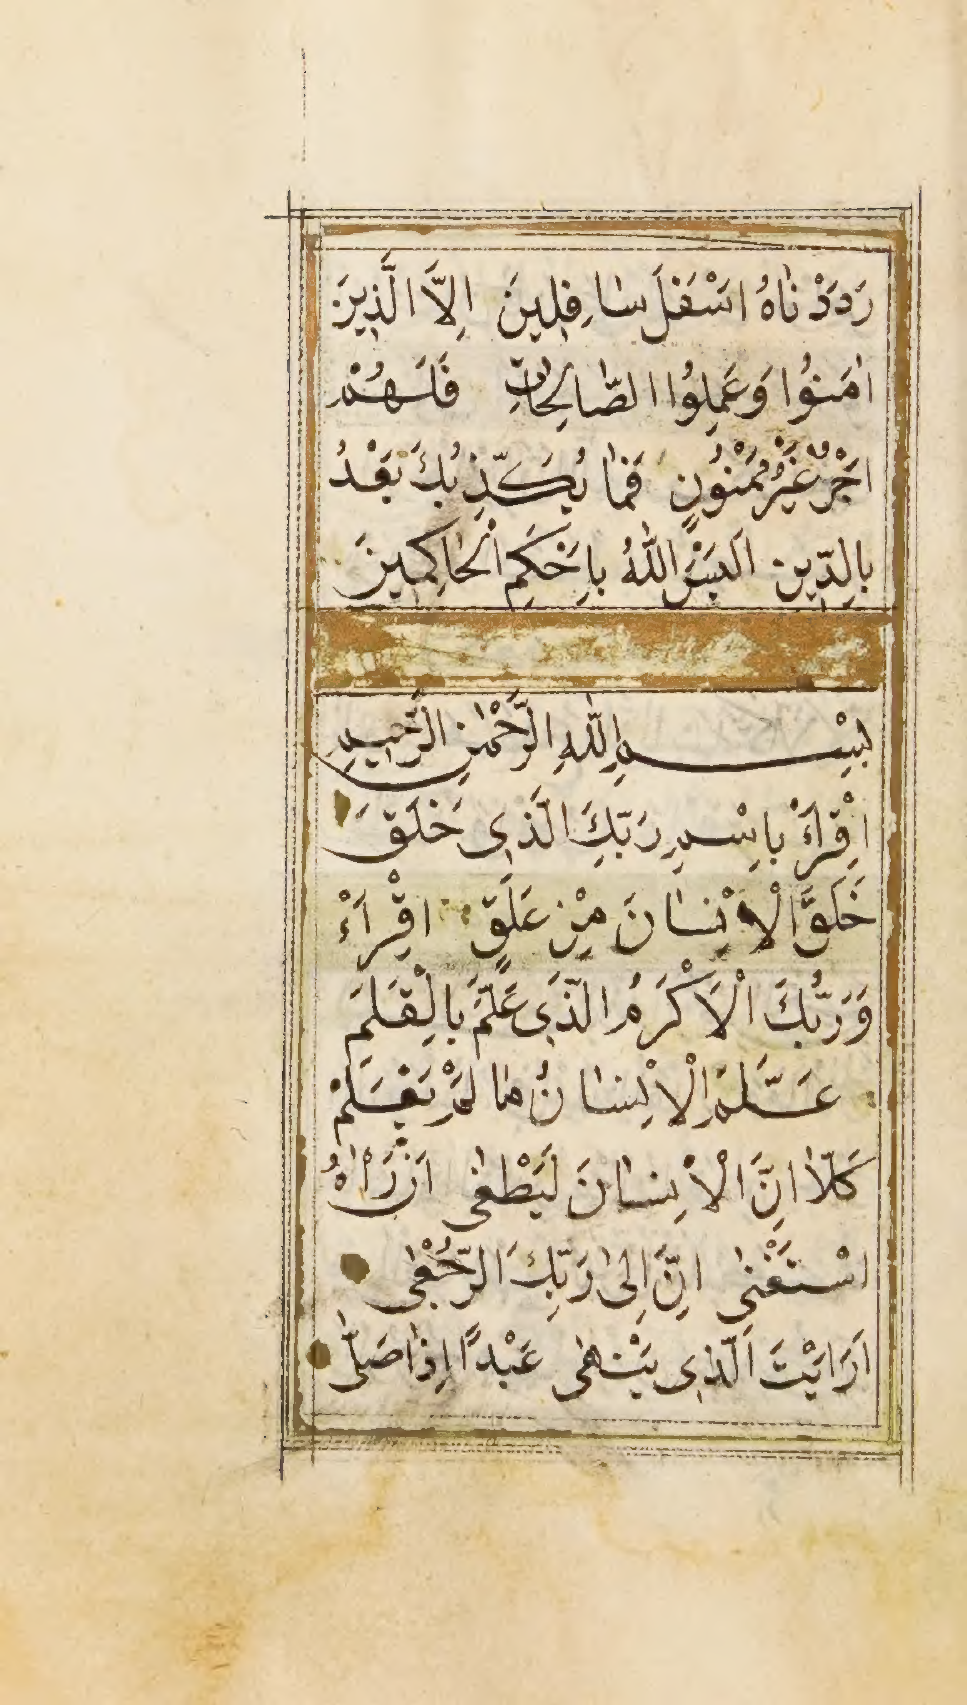 رَدَدْنٰاهُ اَسْفَلَ سٰافِلِينَ اِلاَّ الَّذِينَ
اٰمَنُوا وَعَمِلُوا الصّٰالِحٰاتِ فَلَهُمْ
اَجْرٌ غَيْرُ مَمْنُونٍ فَمٰا يُكَذِّبُكَ بَعْدُ
بِالدِّينِ اَلَيْسَ اللّٰهُ بِاَحْكَمِ الْحٰاكِمِينَ
بِسْمِ اللّٰهِ الرَّحْمٰنِ الرَّحِيمِ
اِقْرَاْ بِاسْمِ رَبِّكَ الَّذِى خَلَقَ
خَلَقَ الْاِنْسٰانَ مِنْ عَلَقٍ اِقْرَاْ
وَرَبُّكَ الْاَكْرَمُ الَّذِى عَلَّمَ بِالْقَلَمِ
عَلَّمَ الْاِنْسٰانَ مٰا لَمْ يَعْلَمْ
كَلّٰا اِنَّ الْاِنْسٰانَ لَيَطْغٰى اَنْ رَاٰهُ
اسْتَغْنٰى اِنَّ اِلىٰ رَبِّكَ الرُّجْعٰى
اَرَاَيْتَ الَّذِى يَنْهٰى عَبْدًا اِذٰا صَلّٰى